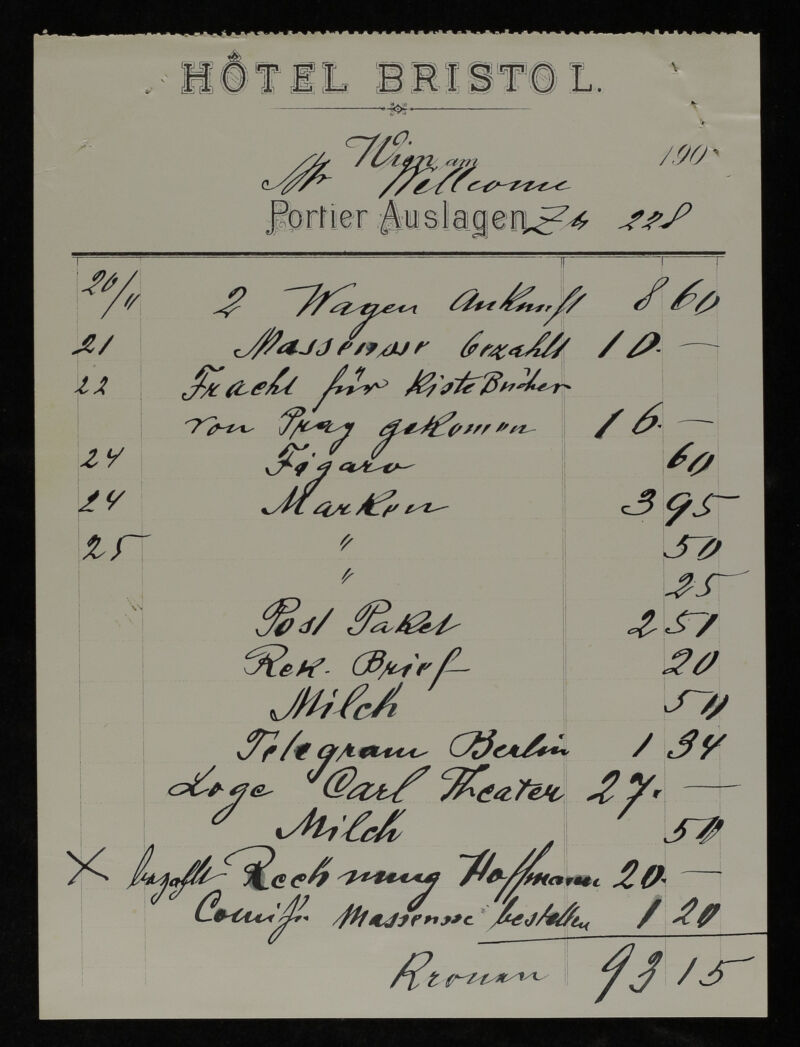 HÔTEL BRISTOL.
Wien, am 190
Mr Wellcome
Portier Auslagen Zr 228
20/11 2 Wagen Ankunft 8 60
21 Massenose bezahlt 10. —
22 Fracht für Kiste Bücher
von Prag gekomen 16. —
24 Figaro 60
24 Marken 3 95
25 " 50
" 25
Post Paket 2 51
Rek. Brief 20
Milch 50
Telegram Berlin 1 34
Loge Carl Theater 27. —
Milch 50
X bezahlt Rechnung Hoffmann 20. —
Comiss. bestellen 1 20
Kronen 93 15